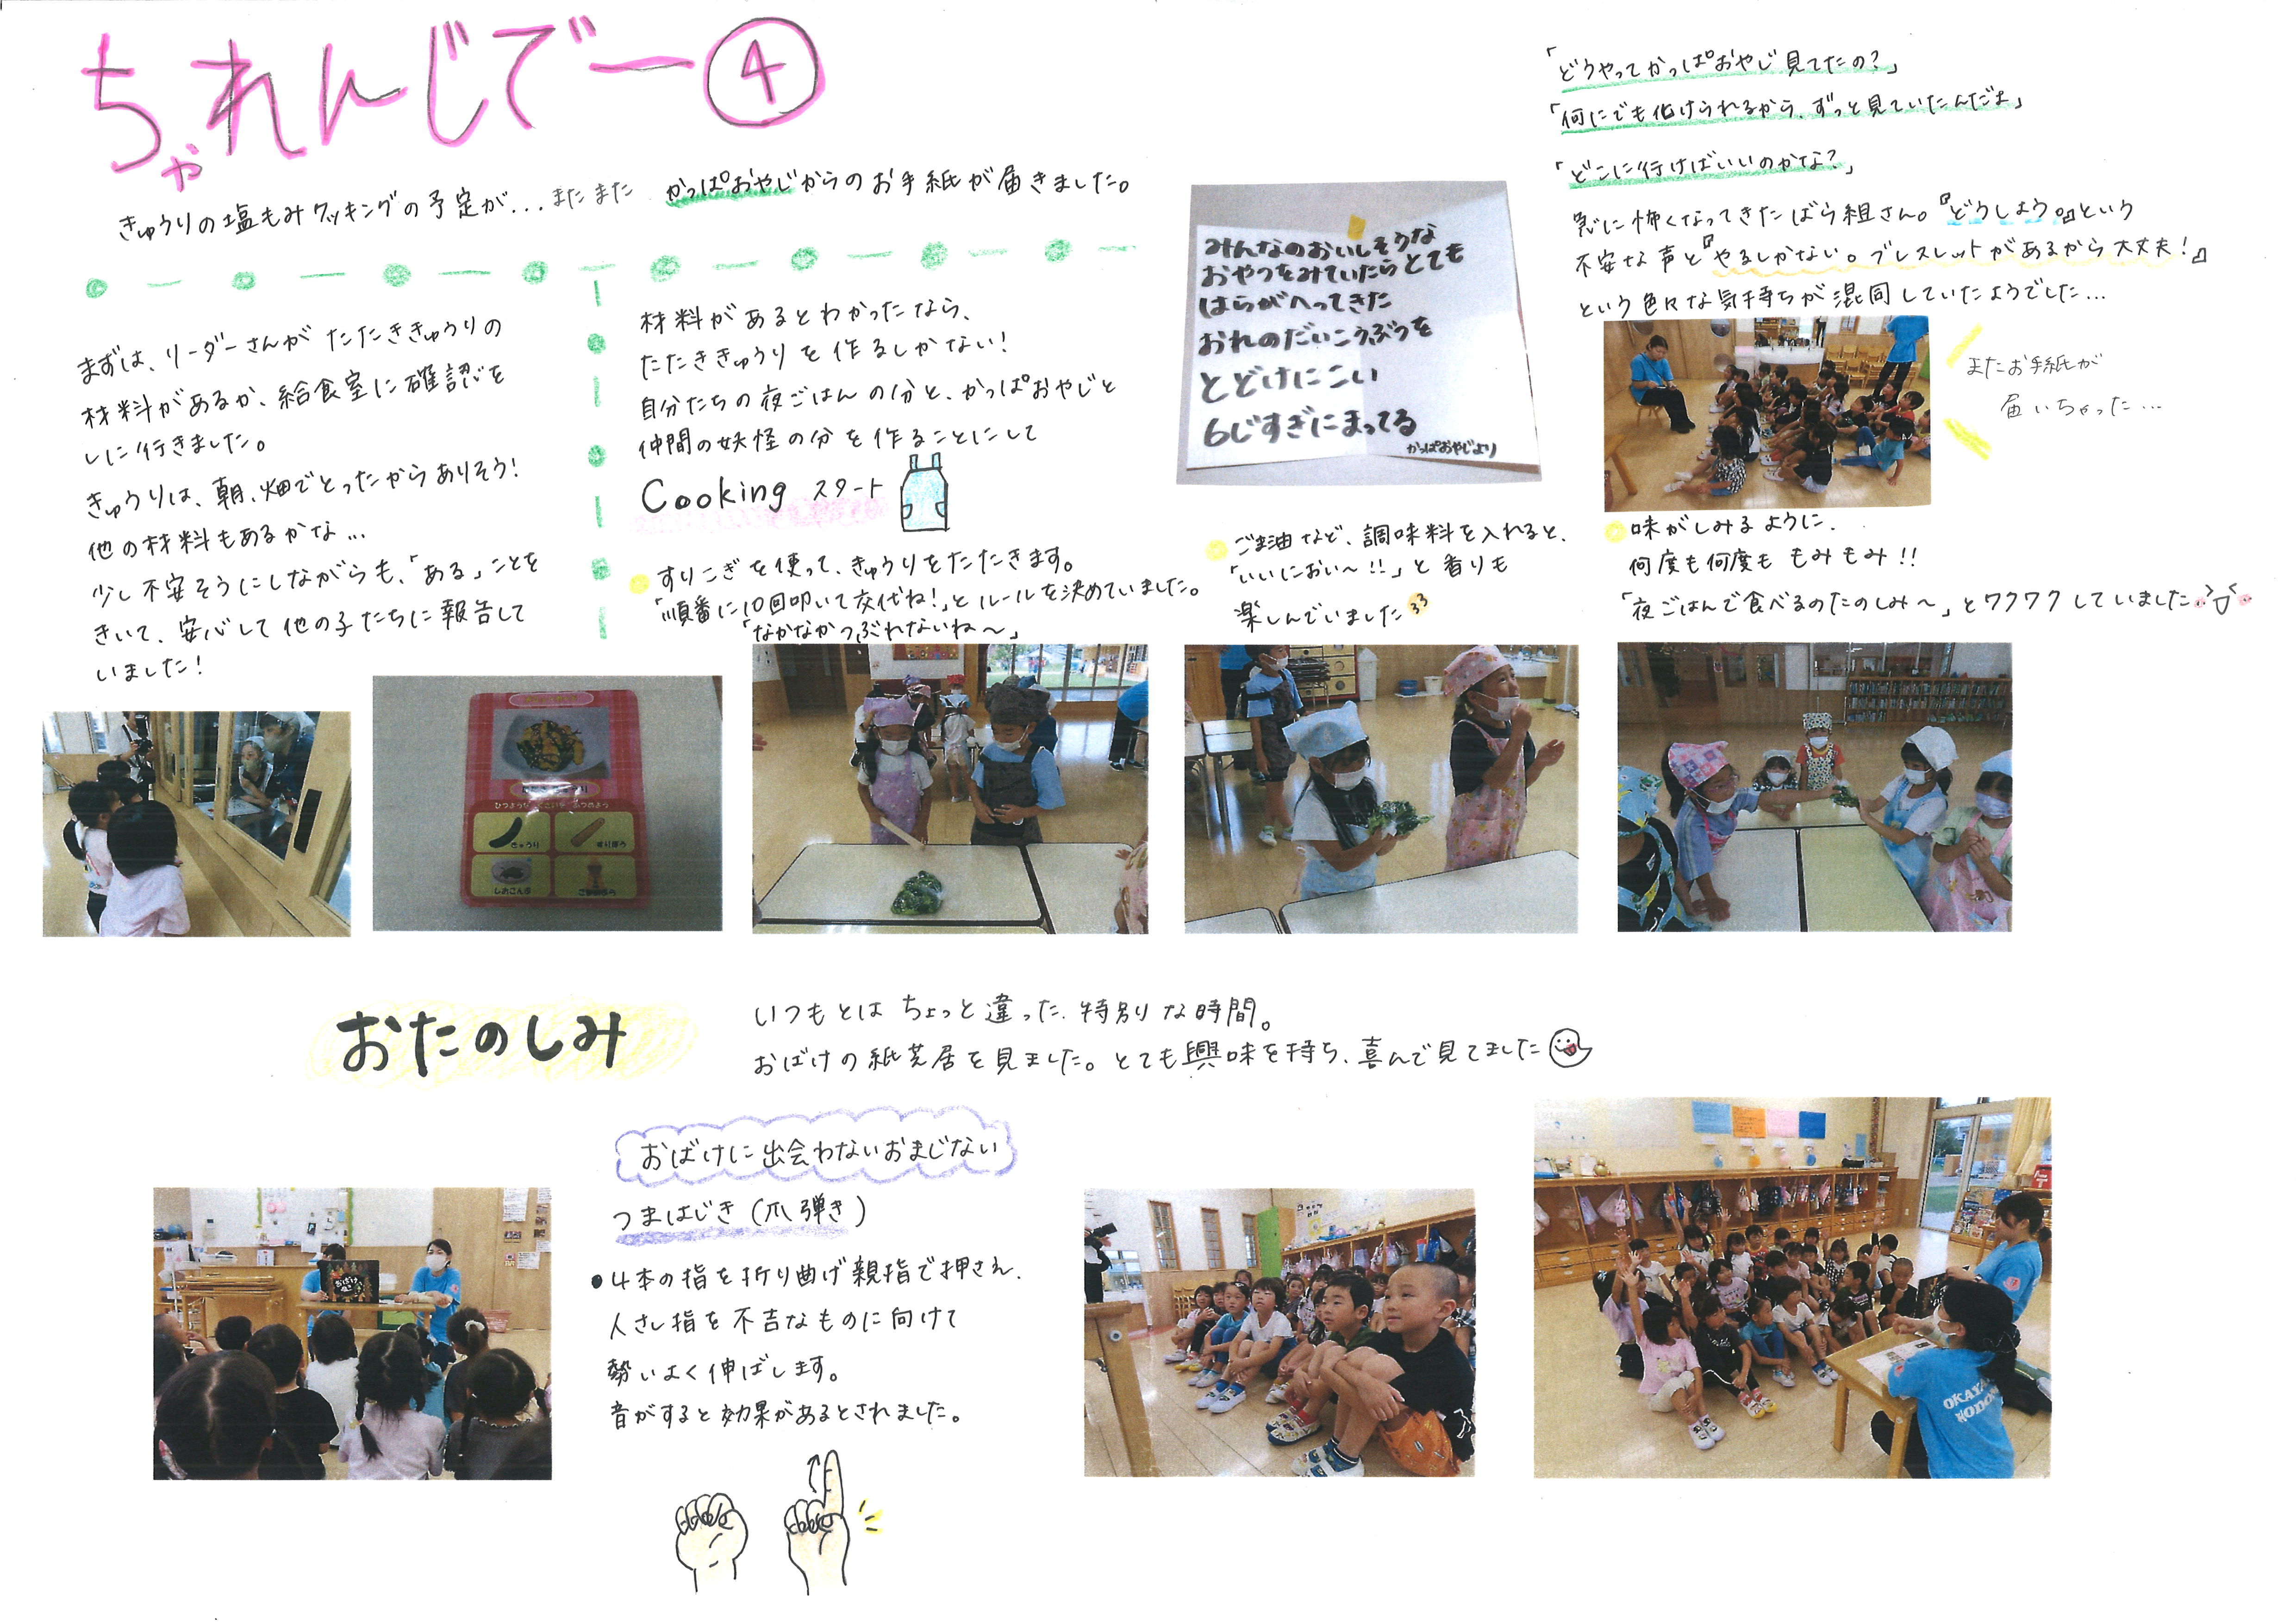 ちゃれんじでー④
きゅうりの塩もみクッキングの予定が...またまた かっぱおやじからのお手紙が届きました。
まずは、リーダーさんが たたききゅうりの
材料があるか、給食室に確認を
しに行きました。
きゅうりは、朝、畑でとったからありそう!
他の材料もあるかな...
少し不安そうにしながらも、「ある」ことを
きいて、安心して他の子たちに報告して
いました!
材料があるとわかったなら、
たたききゅうりを作るしかない!
自分たちの夜ごはんの分と、かっぱおやじと
仲間の妖怪の分を作ることにして
Cooking スタート
すりこぎを使って、きゅうりをたたきます。
「順番に10回叩いて交代ね!」とルールを決めていました。
「なかなかつぶれないね〜」
みんなのおいしそうな
おやつをみていたらとても
はらがへってきた
おれのだいこうぶつを
とどけにこい
6じすぎにまってる
かっぱおやじより
ごま油など、調味料を入れると、
「いいにおい〜!!」と香りも
楽しんでいました
「どうやってかっぱおやじ見てたの?」
「何にでも化けられるから、ずっと見ていたんだよ」
「どこに行けばいいのかな?」
急に怖くなってきたばら組さん。『どうしよう。』という
不安な声と『やるしかない。ブレスレットがあるから大丈夫!』
という色々な気持ちが混同していたようでした...
またお手紙が
届いちゃった...
味がしみるように、
何度も何度ももみもみ!!
「夜ごはんで食べるのたのしみ〜」とワクワクしていました
きゅうり
すりぼう
しおこんぶ
おたのしみ
いつもとはちょっと違った、特別な時間。
おばけの紙芝居を見ました。とても興味を持ち、喜んで見てました
おばけに出会わないおまじない
つまはじき(爪弾き)
●4本の指を折り曲げ親指で押さえ、
人さし指を不吉なものに向けて
勢いよく伸ばします。
音がすると効果があるとされました。
おばけ